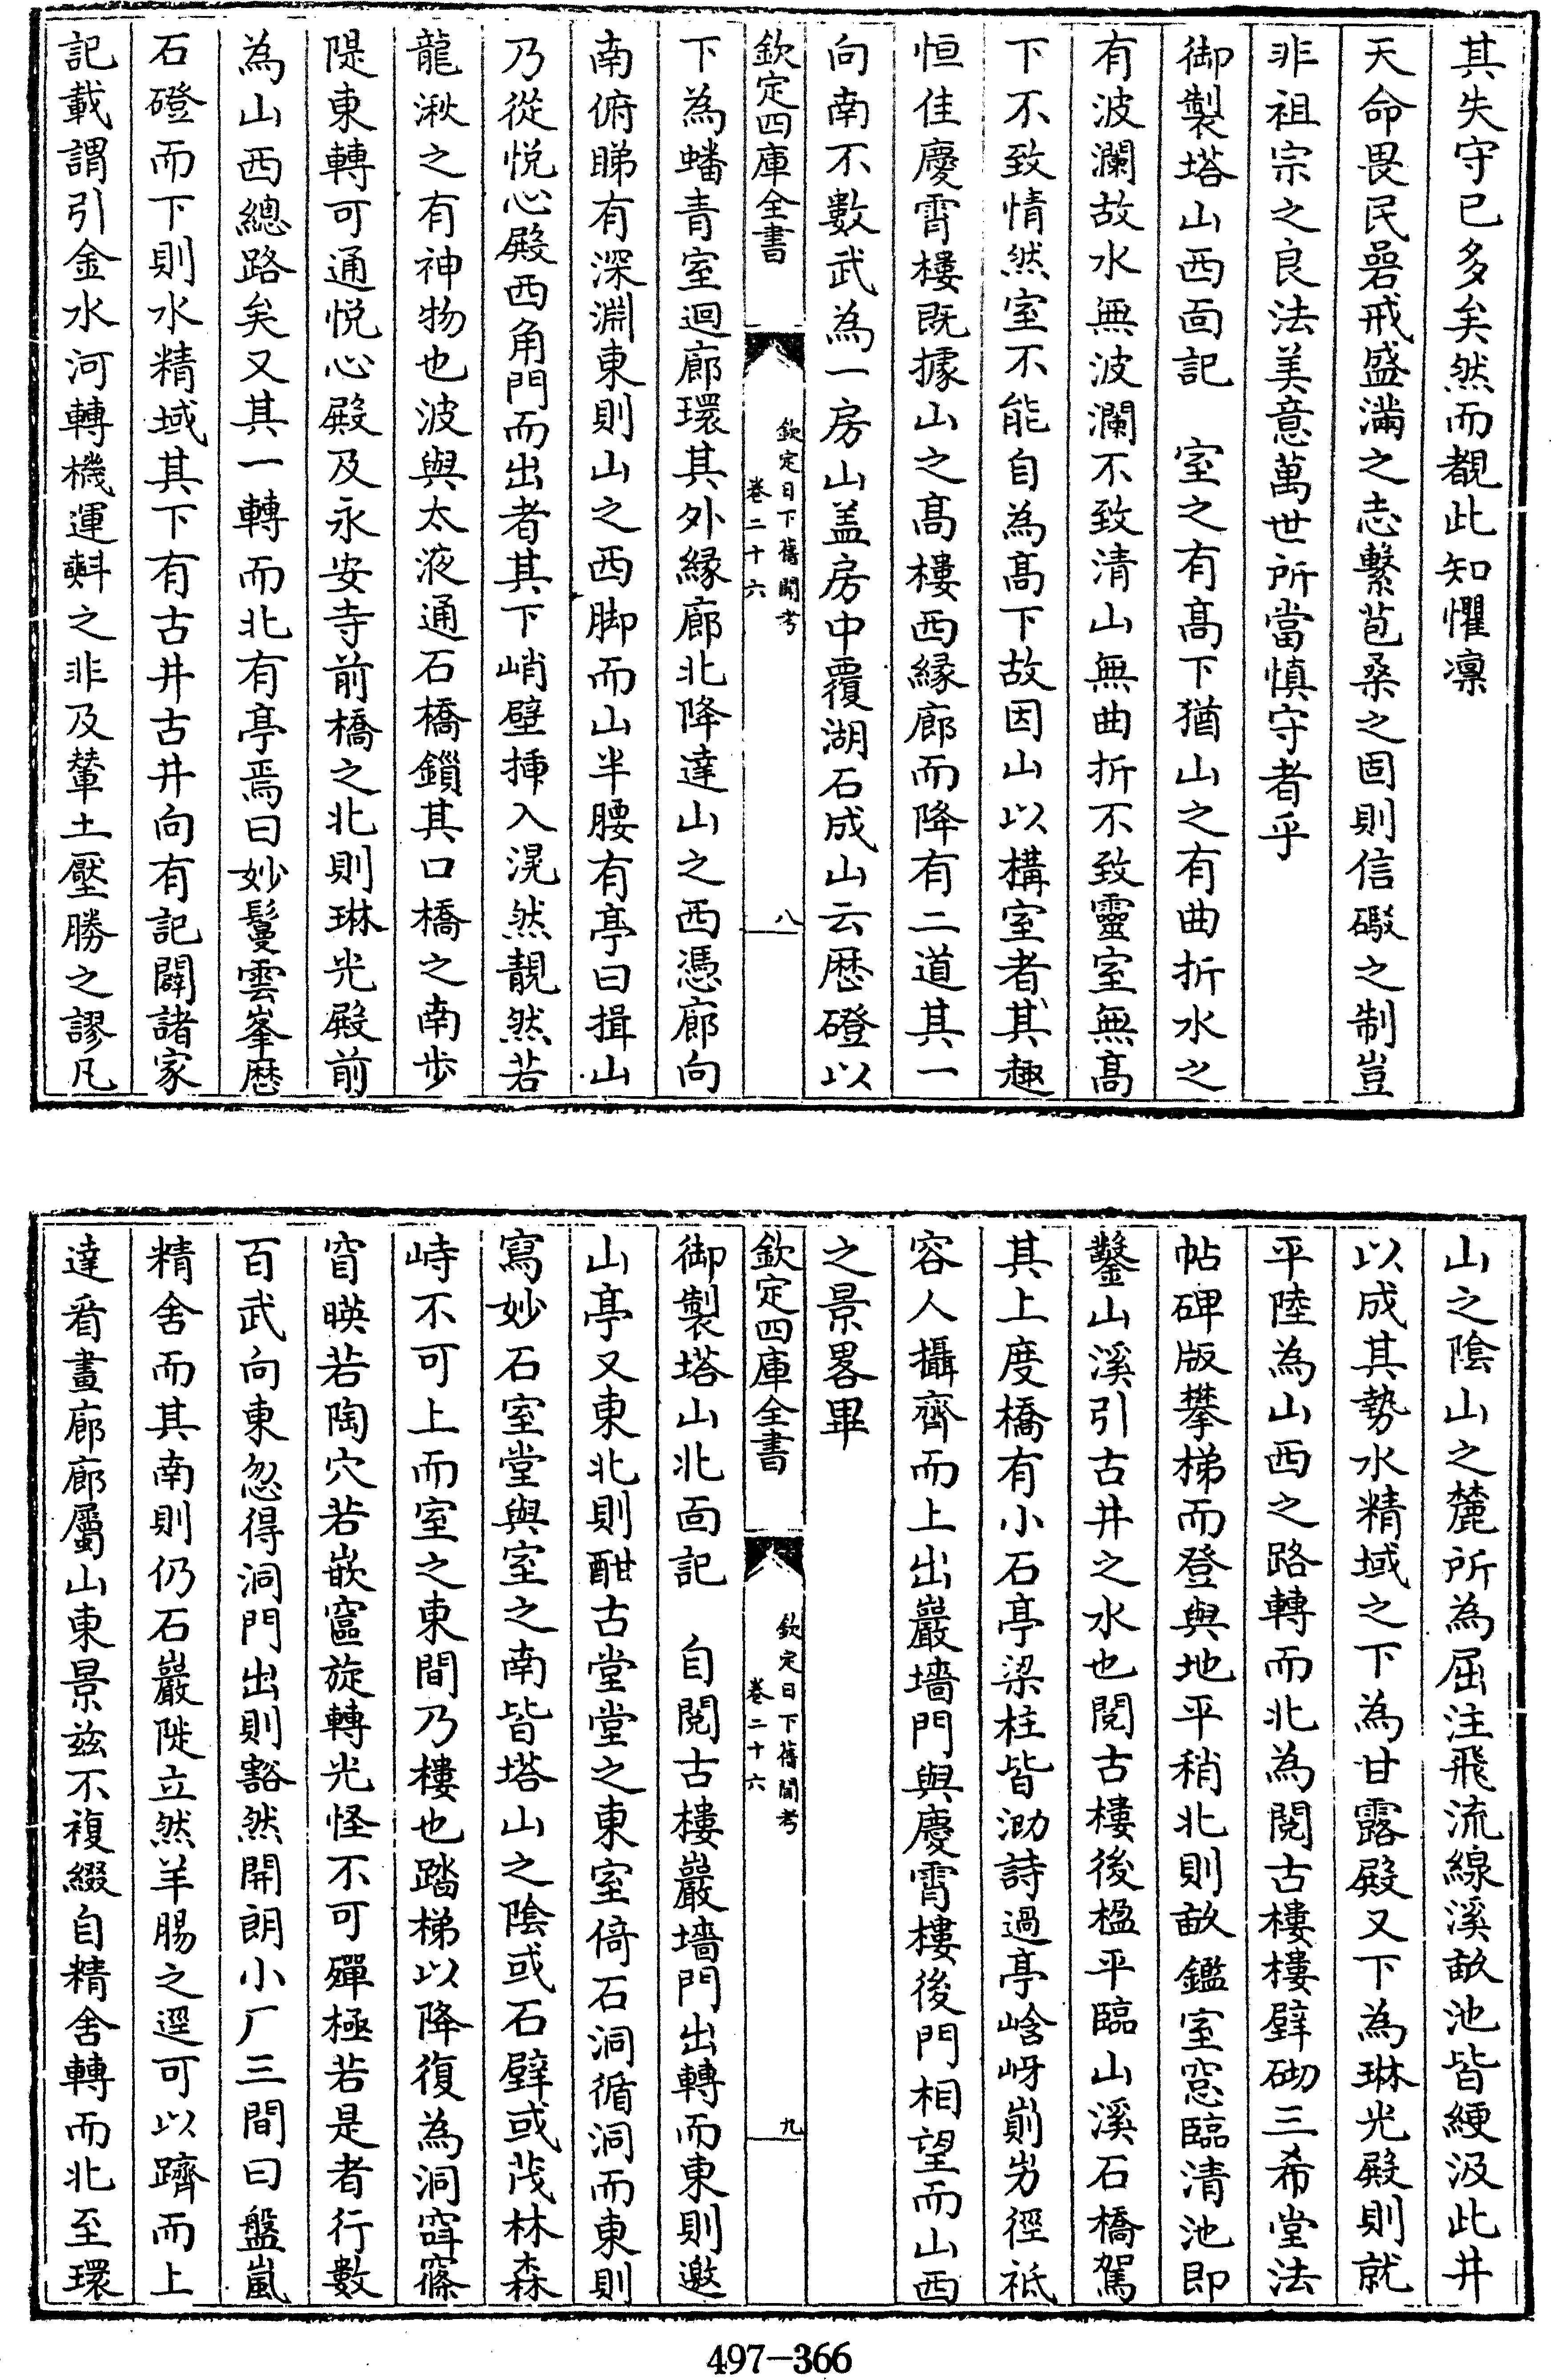 其失守已多矣然而覩此知懼凛
天命畏民碞戒盛滿之志繫苞桑之固則信礟之制豈
非祖宗之良法美意萬世所當慎守者乎
御製塔山西面記　室之有髙下猶山之有曲折水之
有波瀾故水無波瀾不致清山無曲折不致靈室無髙
下不致情然室不能自為髙下故因山以構室者其趣
恒佳慶霄樓既據山之髙樓西縁廊而降有二道其一
向南不數武為一房山盖房中覆湖石成山云厯磴以
欽定四庫全書
欽定日下舊聞考
卷二十六
八
下為蟠青室迴廊環其外縁廊北降達山之西憑廊向
南俯睇有深淵東則山之西脚而山半腰有亭曰揖山
乃從悦心殿西角門而出者其下峭壁揷入滉然靚然若
龍湫之有神物也波與太液通石橋鎻其口橋之南步
隄東轉可通悦心殿及永安寺前橋之北則琳光殿前
為山西總路矣又其一轉而北有亭焉曰妙鬘雲峯厯
石磴而下則水精域其下有古井古井向有記闢諸家
記載謂引金水河轉機運㪺之非及輦土壓勝之謬凡
山之隂山之麓所為屈注飛流線溪畝池皆綆汲此井
以成其勢水精域之下為甘露殿又下為琳光殿則就
平陸為山西之路轉而北為閱古樓樓壁砌三希堂法
帖碑版攀梯而登與地平稍北則畝鑑室窓臨清池即
鑿山溪引古井之水也閱古樓後楹平臨山溪石橋駕
其上度橋有小石亭梁柱皆泐詩過亭㟏岈崱屴徑祗
容人攝齊而上出巖墻門與慶霄樓後門相望而山西
之景畧畢
欽定四庫全書
欽定日下舊聞考
卷二十六
九
御製塔山北面記　自閱古樓巖墻門出轉而東則邀
山亭又東北則酣古堂堂之東室倚石洞循洞而東則
寫妙石室堂與室之南皆塔山之隂或石壁或茂林森
峙不可上而室之東間乃樓也踏梯以降復為洞窙篠
窅暎若陶穴若嵌窟旋轉光怪不可殫極若是者行數
百武向東忽得洞門出則豁然開朗小厂三間曰盤嵐
精舍而其南則仍石巖陡立然羊腸之逕可以躋而上
達看畫廊廊屬山東景兹不複綴自精舍轉而北至環
497—366